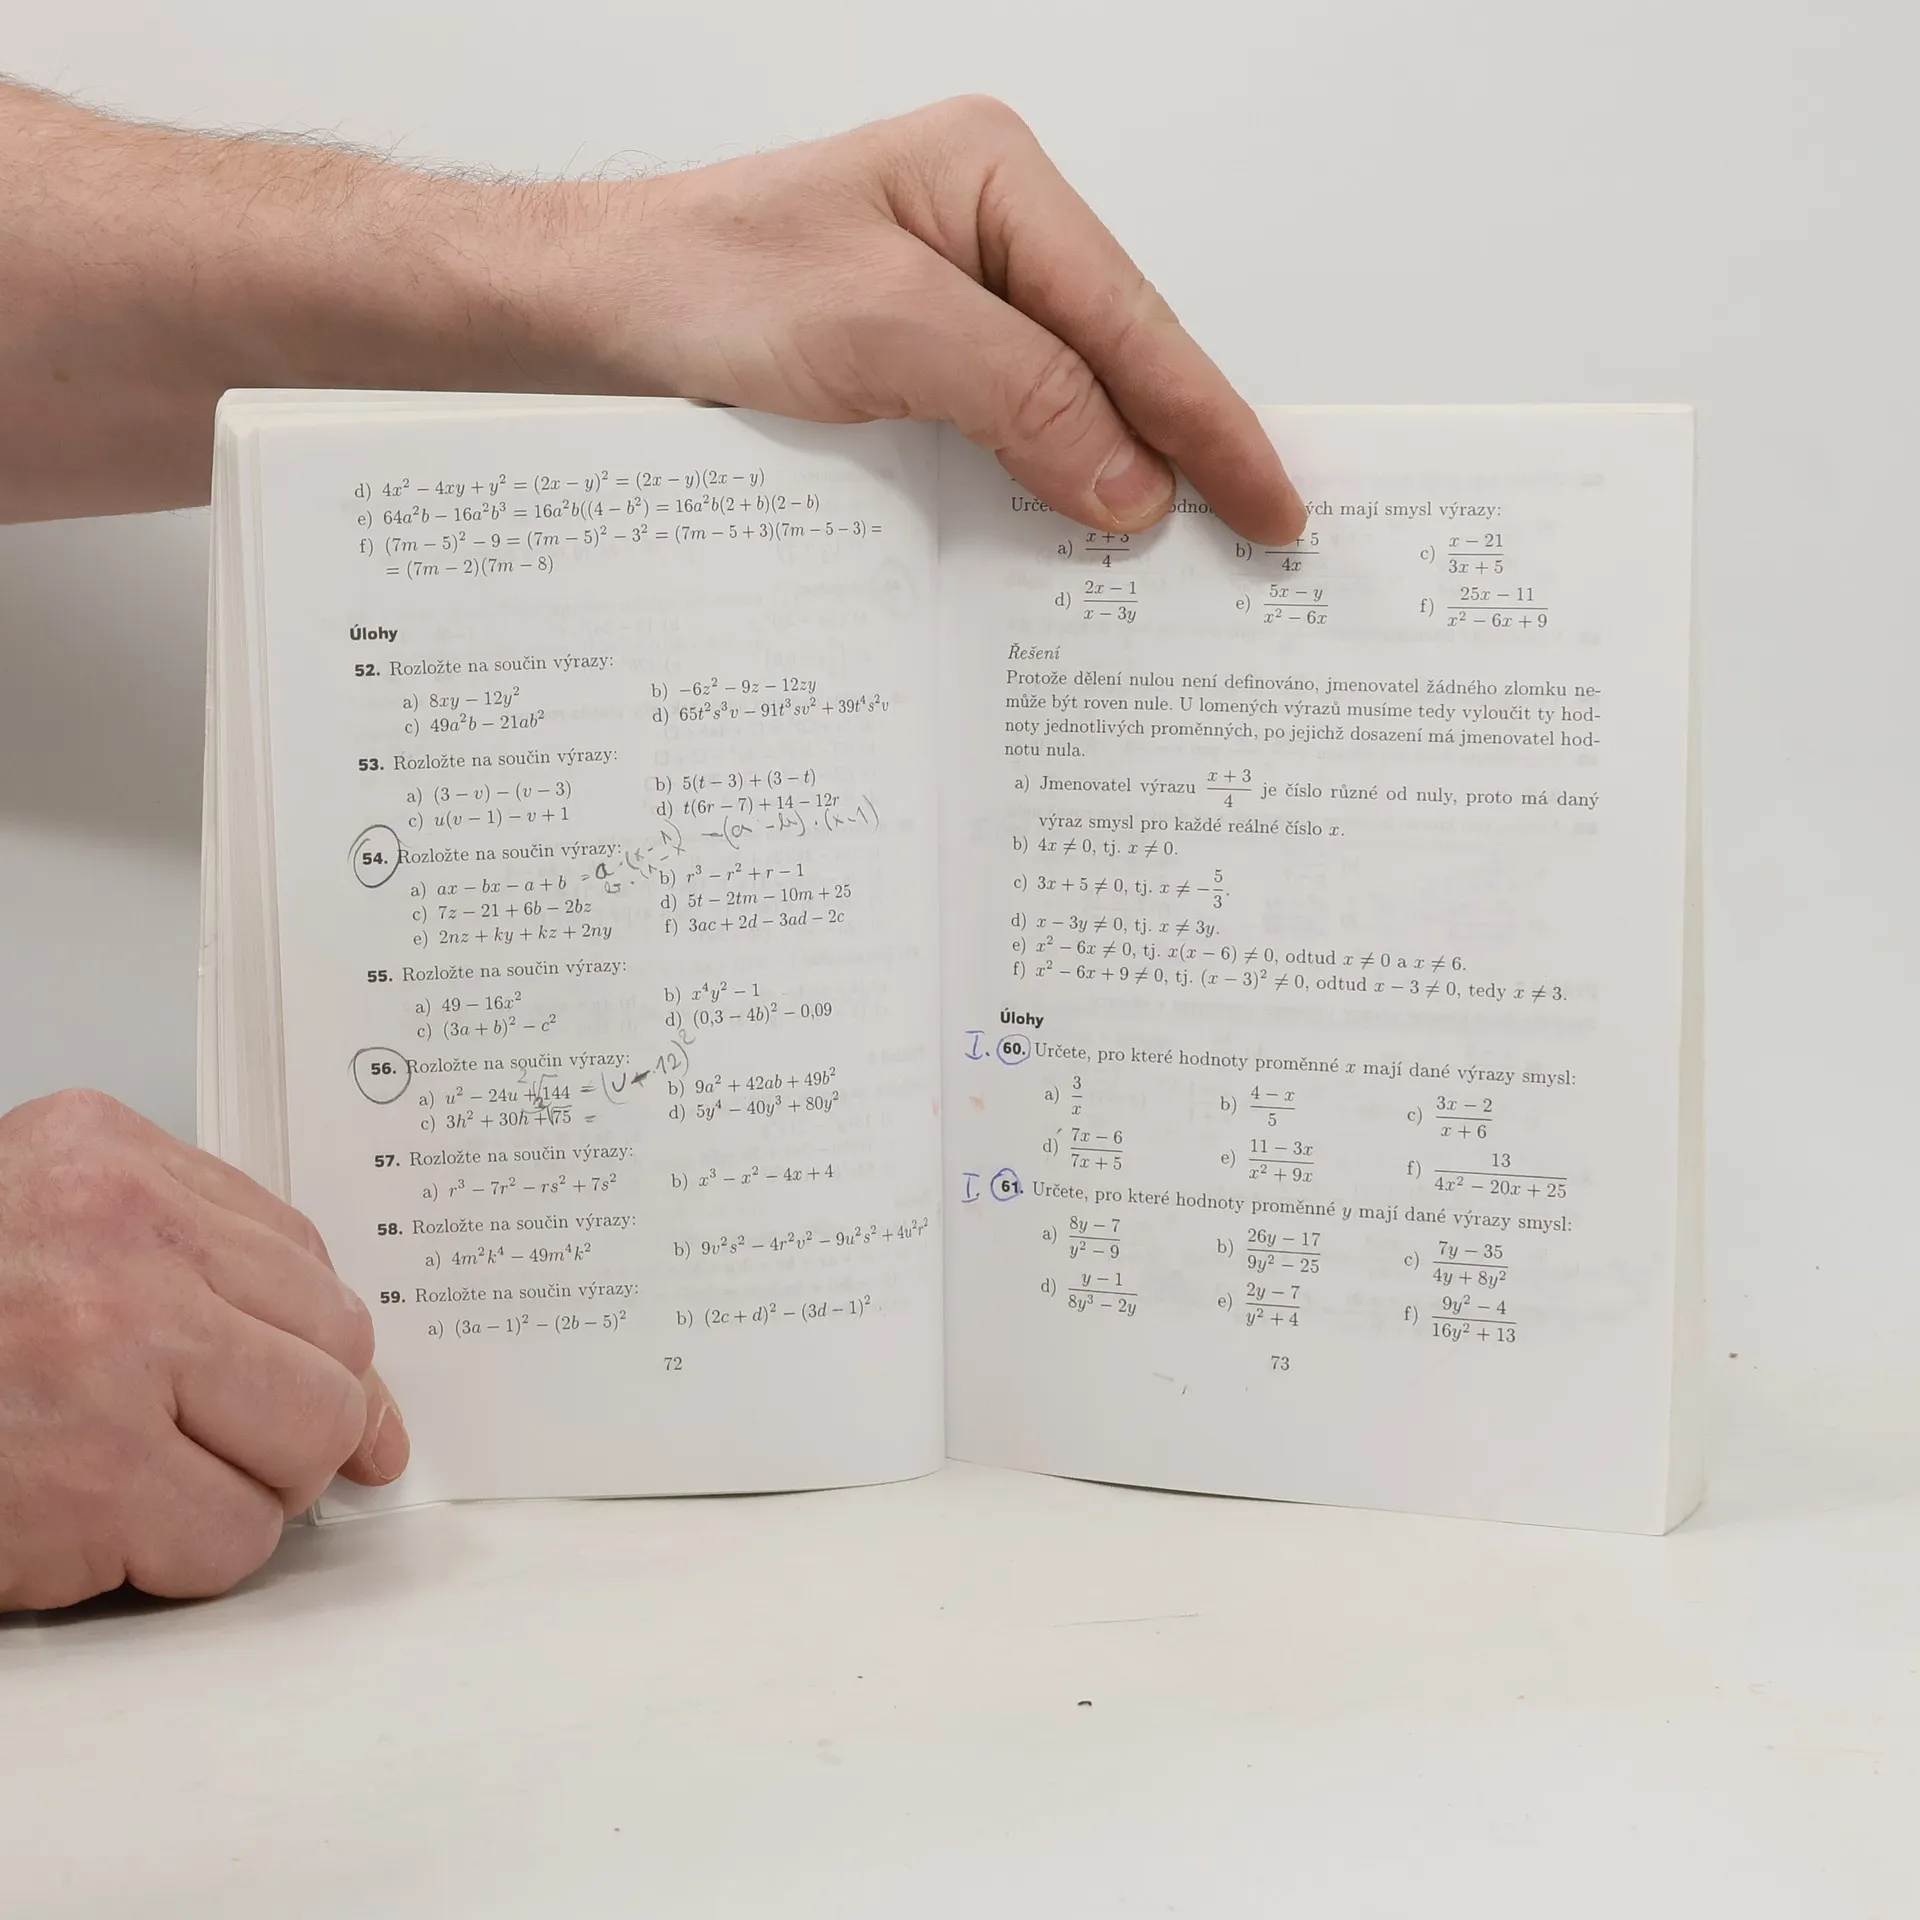 d) 4x² − 4xy + y² = (2x − y)² = (2x − y)(2x − y)
e) 64a²b − 16a²b³ = 16a²b((4 − b²) = 16a²b(2 + b)(2 − b)
f) (7m − 5)² − 9 = (7m − 5)² − 3² = (7m − 5 + 3)(7m − 5 − 3) =
= (7m − 2)(7m − 8)
Úlohy
52. Rozložte na součin výrazy:
a) 8xy − 12y² b) −6z² − 9z − 12zy
c) 49a²b − 21ab² d) 65t²s³v − 91t³sv² + 39t⁴s²v
53. Rozložte na součin výrazy:
a) (3 − v) − (v − 3) b) 5(t − 3) + (3 − t)
c) u(v − 1) − v + 1 d) t(6r − 7) + 14 − 12r
54. Rozložte na součin výrazy:
a) ax − bx − a + b b) r³ − r² + r − 1
c) 7z − 21 + 6b − 2bz d) 5t − 2tm − 10m + 25
e) 2nz + ky + kz + 2ny f) 3ac + 2d − 3ad − 2c
55. Rozložte na součin výrazy:
a) 49 − 16x² b) x⁴y² − 1
c) (3a + b)² − c² d) (0,3 − 4b)² − 0,09
56. Rozložte na součin výrazy:
a) u² − 24u + 144 = (u − 12)² b) 9a² + 42ab + 49b²
c) 3h² + 30h + 75 = d) 5y⁴ − 40y³ + 80y²
57. Rozložte na součin výrazy:
a) r³ − 7r² − rs² + 7s² b) x³ − x² − 4x + 4
58. Rozložte na součin výrazy:
a) 4m²k⁴ − 49m⁴k² b) 9v²s² − 4r²v² − 9u²s² + 4u²r²
59. Rozložte na součin výrazy:
a) (3a − 1)² − (2b − 5)² b) (2c + d)² − (3d − 1)²
72
mají smysl výrazy:
a) x + 3 / 4 b) + 5 / 4x c) x − 21 / 3x + 5
d) 2x − 1 / x − 3y e) 5x − y / x² − 6x f) 25x − 11 / x² − 6x + 9
Řešení
Protože dělení nulou není definováno, jmenovatel žádného zlomku ne-
může být roven nule. U lomených výrazů musíme tedy vyloučit ty hod-
noty jednotlivých proměnných, po jejichž dosazení má jmenovatel hod-
notu nula.
a) Jmenovatel výrazu x + 3 / 4 je číslo různé od nuly, proto má daný
výraz smysl pro každé reálné číslo x.
b) 4x ≠ 0, tj. x ≠ 0.
c) 3x + 5 ≠ 0, tj. x ≠ −5/3.
d) x − 3y ≠ 0, tj. x ≠ 3y.
e) x² − 6x ≠ 0, tj. x(x − 6) ≠ 0, odtud x ≠ 0 a x ≠ 6.
f) x² − 6x + 9 ≠ 0, tj. (x − 3)² ≠ 0, odtud x − 3 ≠ 0, tedy x ≠ 3.
Úlohy
I. 60. Určete, pro které hodnoty proměnné x mají dané výrazy smysl:
a) 3 / x b) 4 − x / 5 c) 3x − 2 / x + 6
d) 7x − 6 / 7x + 5 e) 11 − 3x / x² + 9x f) 13 / 4x² − 20x + 25
I. 61. Určete, pro které hodnoty proměnné y mají dané výrazy smysl:
a) 8y − 7 / y² − 9 b) 26y − 17 / 9y² − 25 c) 7y − 35 / 4y + 8y²
d) y − 1 / 8y³ − 2y e) 2y − 7 / y² + 4 f) 9y² − 4 / 16y² + 13
73